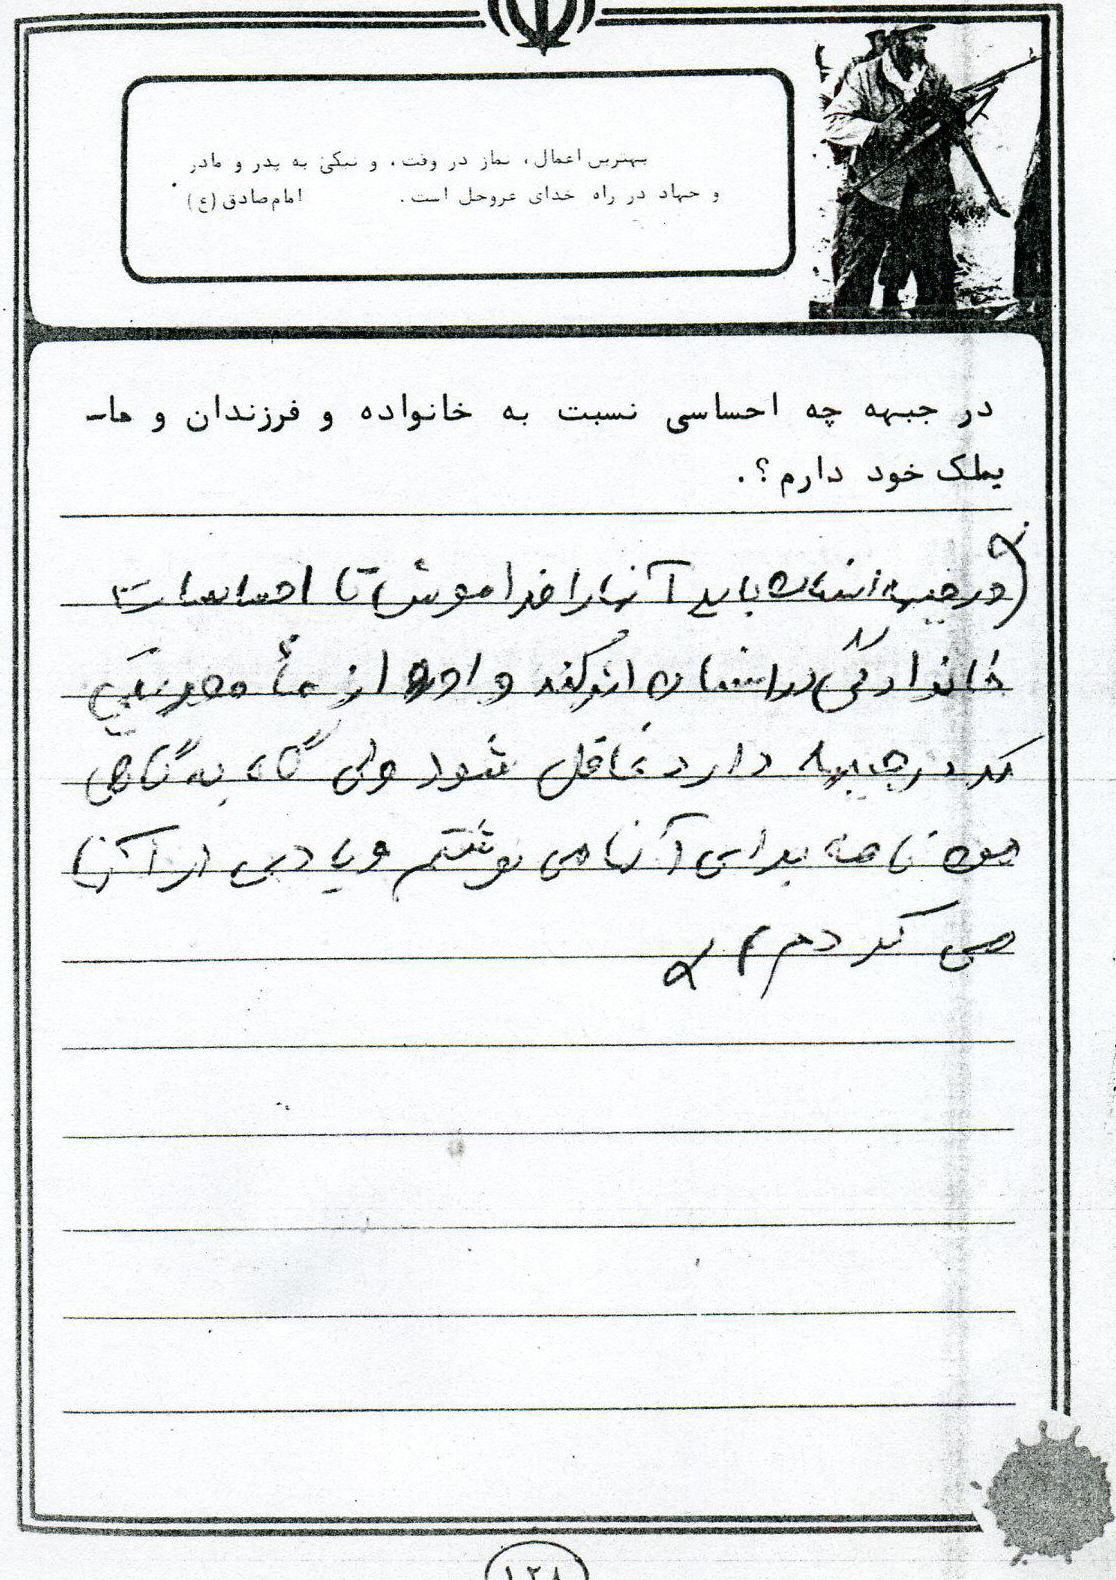 بهترین اعمال، نماز در وقت، و نیکی به پدر و مادر
و جهاد در راه خدای عزوجل است. امام صادق (ع)
در جبهه چه احساسی نسبت به خانواده و فرزندان و ما-
یملک خود دارم؟.
در جبهه انسان باید آنها را فراموش تا احساسات
خانوادگی در انسان اثر نکند و او را از مأموریتی
که در جبهه دارد غافل شود ولی گاه به گاهی
من نامه برای آنها می نوشتم و یادی از آنها
می کردم
۱۲۸